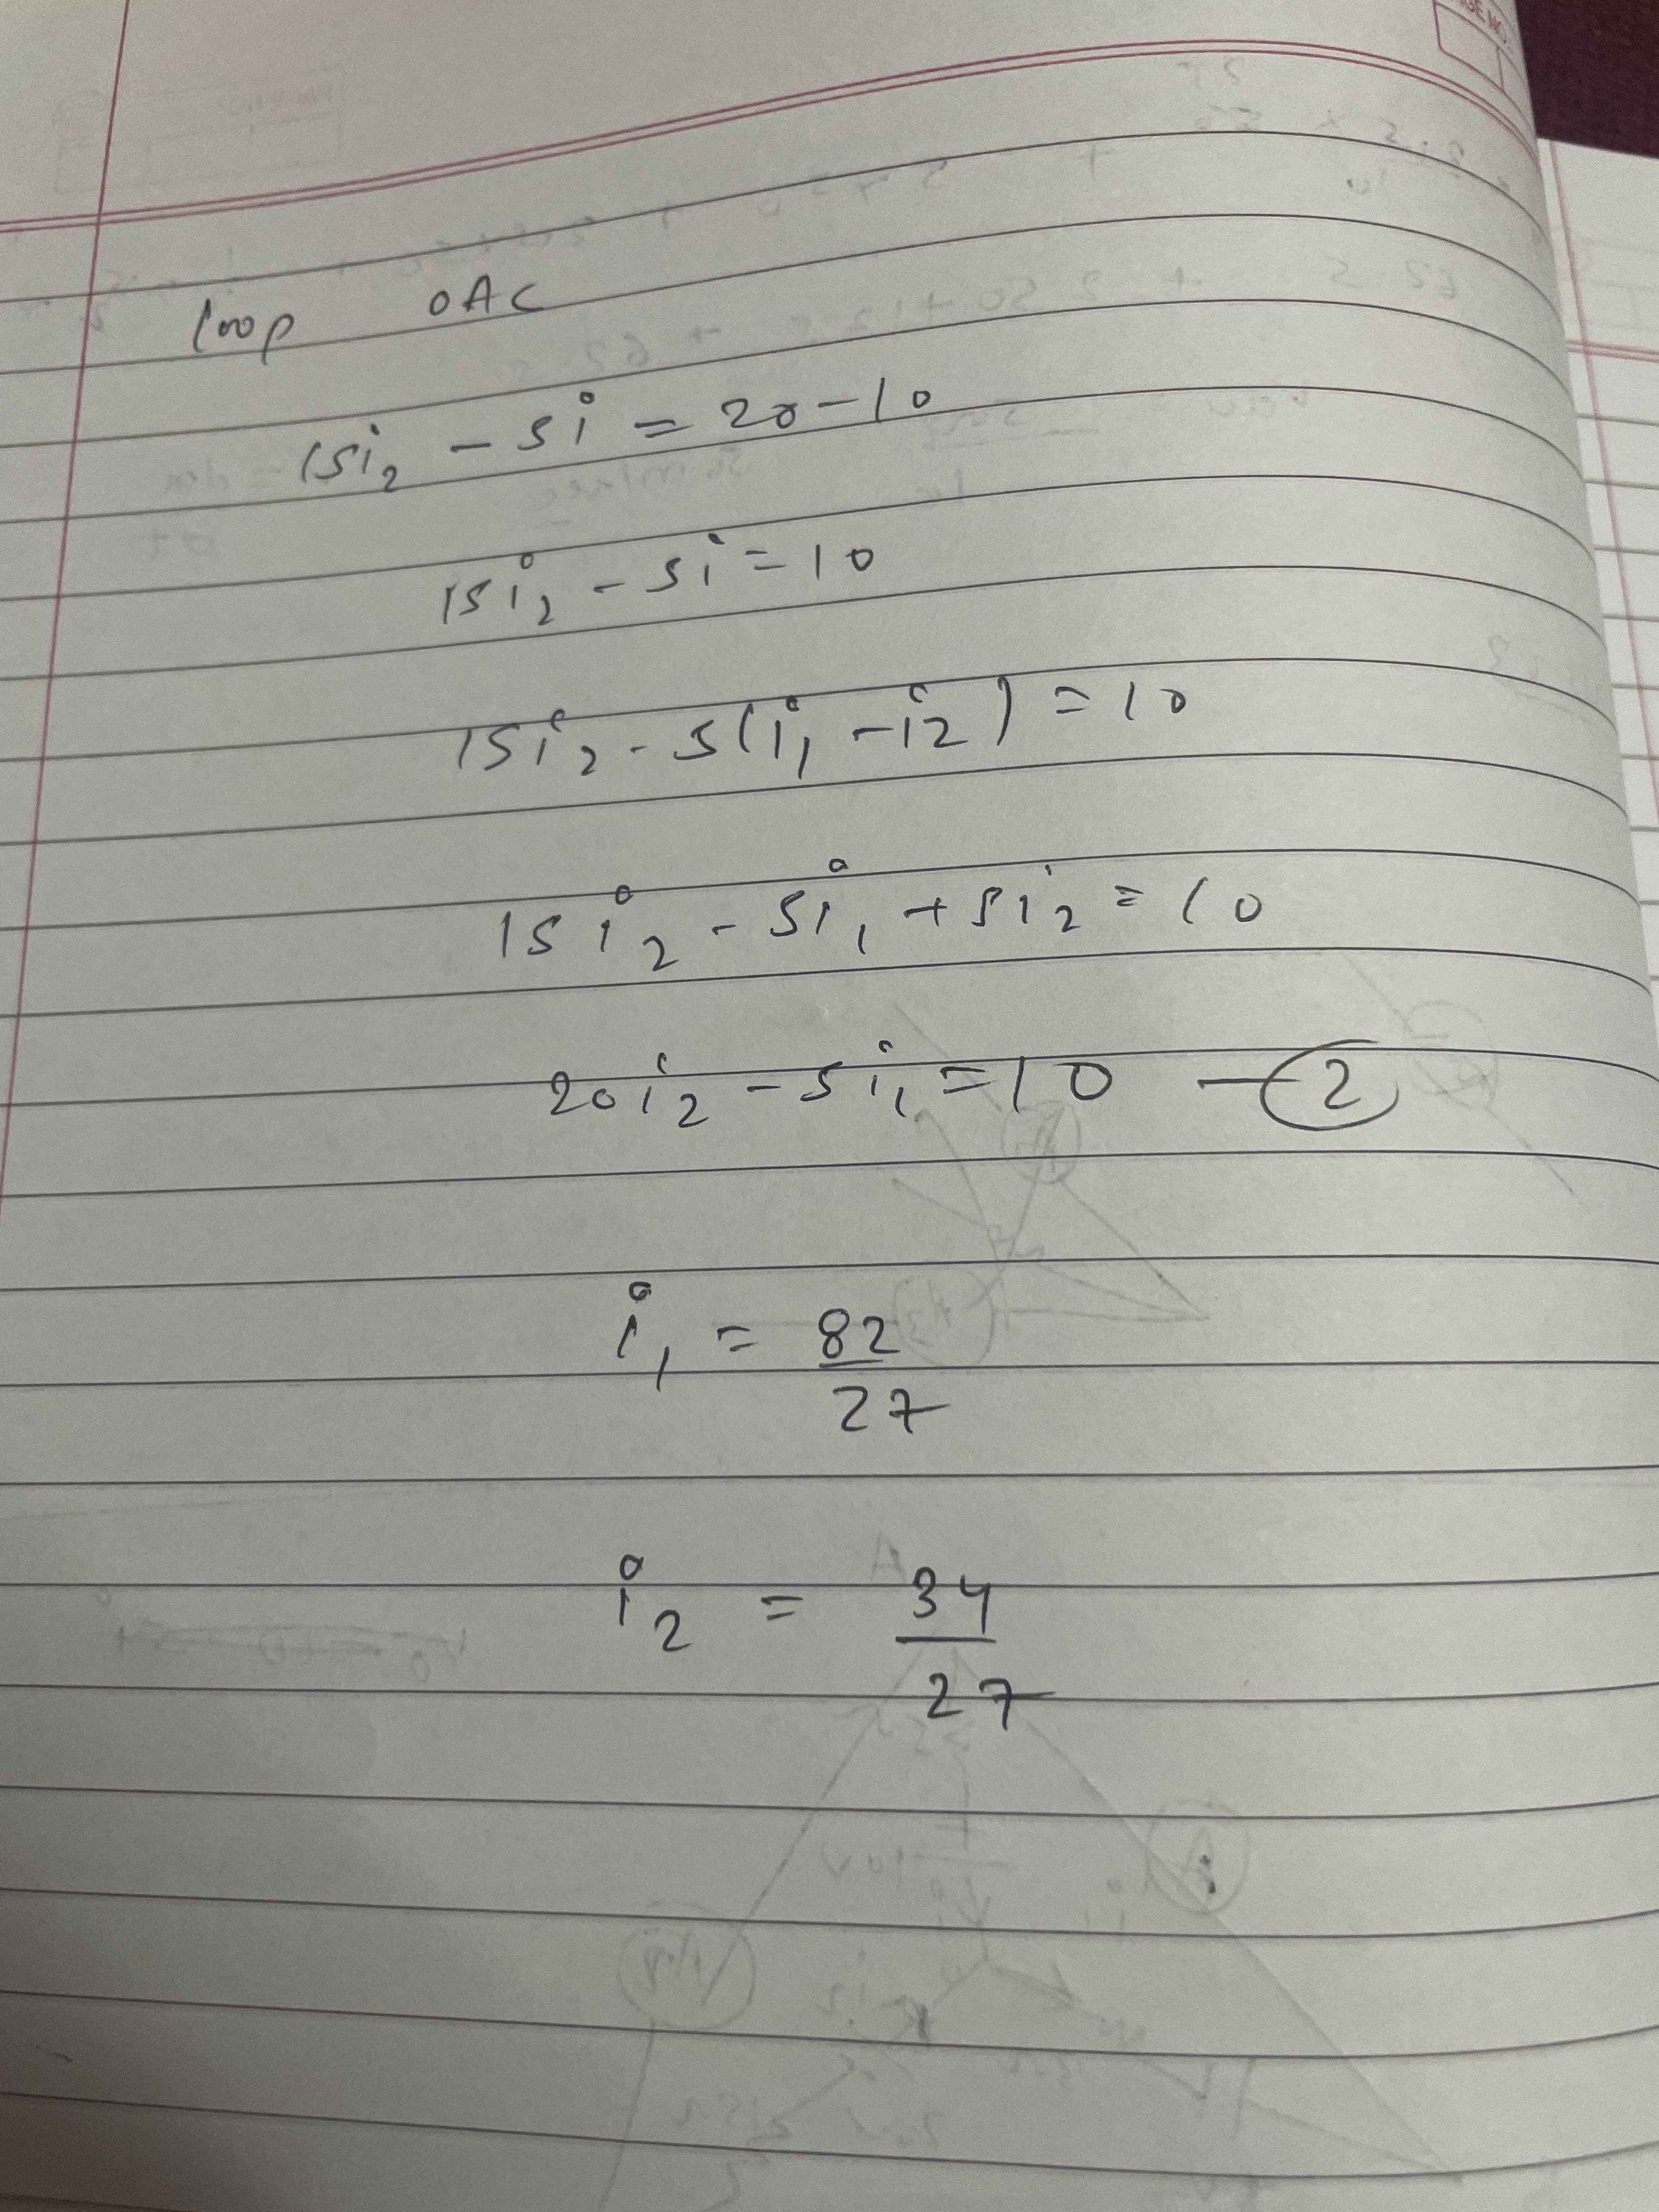 loop OAC
15i₂ - 5i = 20-10
15i₂ - 5i = 10
15i₂ - 5(i₁ - i2) = 10
15i₂ - 5i₁ + 5i₂ = 10
20i₂ - 5i₁ = 10 — ②
i₁ = 82
27
i₂ = 34
27